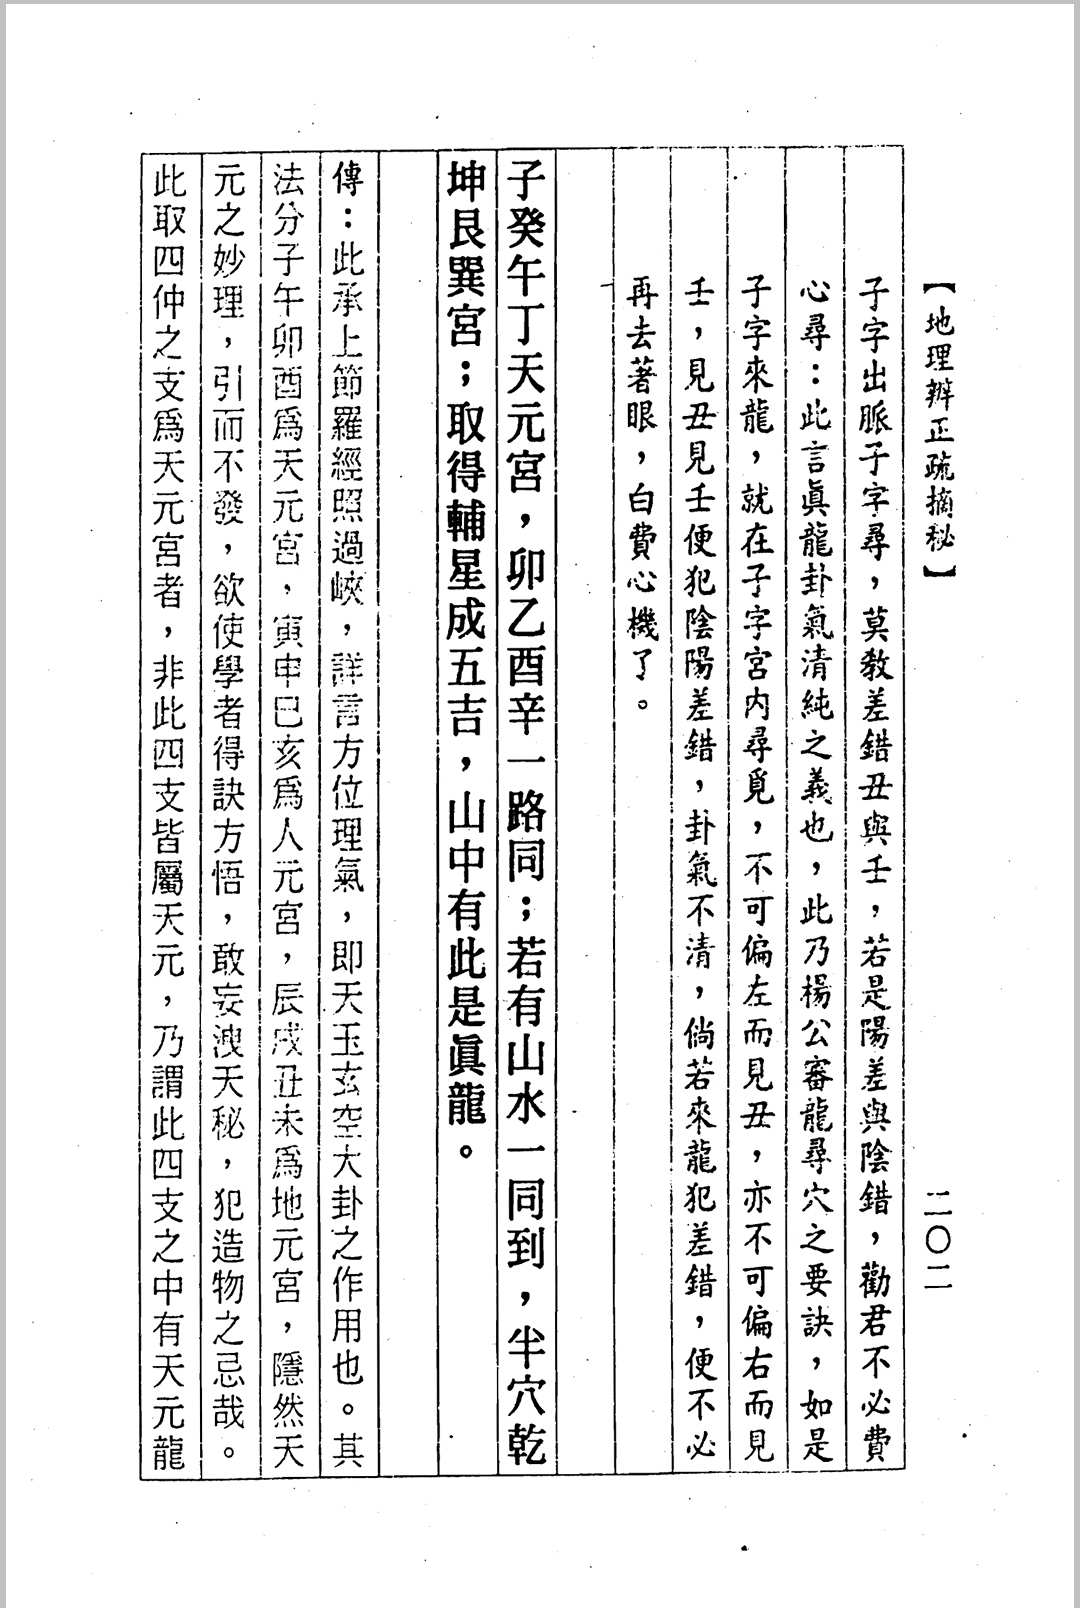 【地理辨正疏摘秘】
二〇二
子字出脈子字尋，莫教差錯丑與壬，若是陽差與陰錯，勸君不必費
心尋：此言眞龍卦氣清純之義也，此乃楊公審龍尋穴之要訣，如是
子字來龍，就在子字宮內尋覓，不可偏左而見丑，亦不可偏右而見
壬，見丑見壬便犯陰陽差錯，卦氣不清，倘若來龍犯差錯，便不必
再去著眼，白費心機了。
子癸午丁天元宮，卯乙酉辛一路同；若有山水一同到，半穴乾
坤艮巽宮；取得輔星成五吉，山中有此是眞龍。
傳：此承上節羅經照過峽，詳言方位理氣，即天玉玄空大卦之作用也。其
法分子午卯酉爲天元宮，寅申巳亥爲人元宮，辰戌丑未爲地元宮，隱然天
元之妙理，引而不發，欲使學者得訣方悟，敢妄洩天秘，犯造物之忌哉。
此取四仲之支爲天元宮者，非此四支皆屬天元，乃謂此四支之中有天元龍